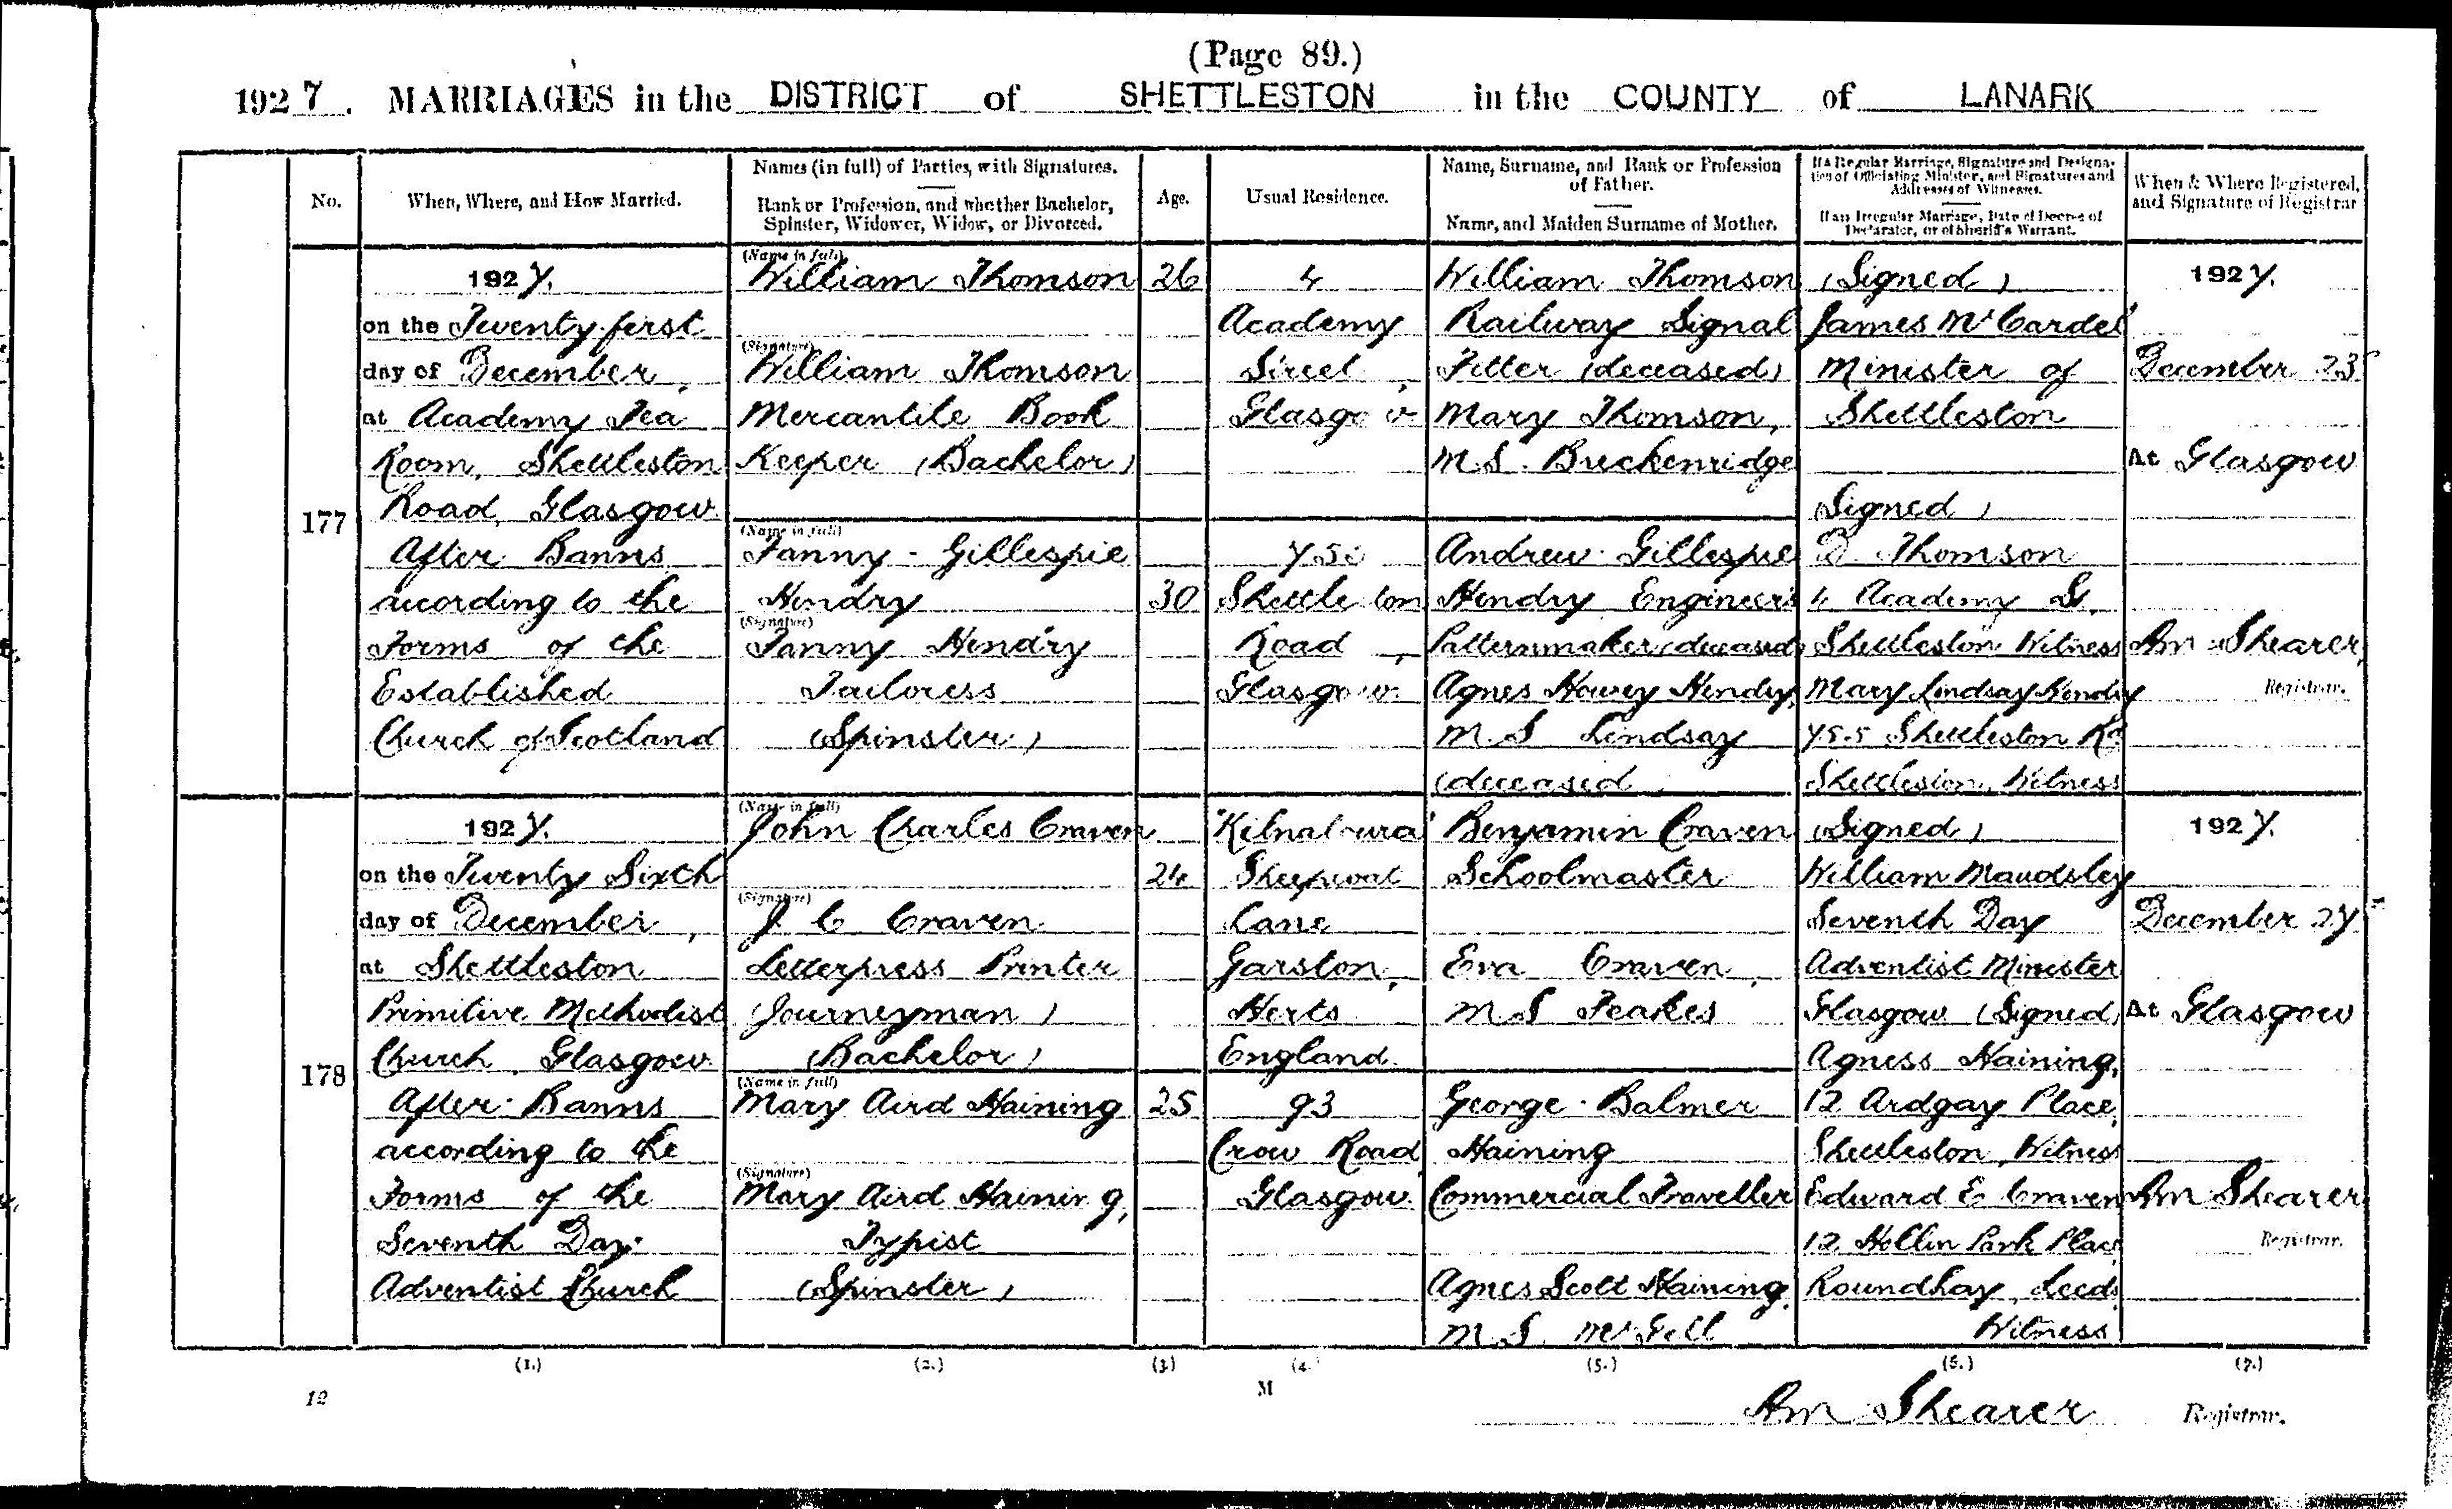 (Page 89.)
1927. MARRIAGES in the DISTRICT of SHETTLESTON in the COUNTY of LANARK
No.
When, Where, and How Married.
Names (in full) of Parties, with Signatures.
Rank or Profession, and whether Bachelor,
Spinster, Widower, Widow, or Divorced.
Age.
Usual Residence.
Name, Surname, and Rank or Profession
of Father.
Name, and Maiden Surname of Mother.
If a Regular Marriage, Signature and Designa-
tion of Officiating Minister, and Signatures and
Addresses of Witnesses.
If an Irregular Marriage, Date of Decree of
Declarator, or of Sheriff's Warrant.
When & Where Registered,
and Signature of Registrar
177
1927.
on the Twenty first
day of December,
at Academy Tea
Room, Shettleston
Road, Glasgow.
After Banns
according to the
Forms of the
Established
Church of Scotland
(Name in full)
William Thomson
(Signature)
William Thomson
Mercantile Book
Keeper (Bachelor)
(Name in full)
Fanny Gillespie
Hendry
(Signature)
Fanny Hendry
Tailoress
(Spinster)
26
30
4
Academy
Street,
Glasgow
Shettleston
Road,
Glasgow
William Thomson
Railway Signal
Fitter (deceased)
Mary Thomson,
M.S. Breckenridge
Andrew Gillespie
Hendry Engineer's
Patternmaker (deceased)
Agnes Howey Hendry,
M.S. Lindsay
(deceased
(Signed)
James McCardel
Minister of
Shettleston
(Signed)
D. Thomson
4 Academy St.
Shettleston Witness
Mary Lindsay Hendry
755 Shettleston Rd
Shettleston, Witness
1927.
December 23
At Glasgow
Am Shearer,
Registrar.
178
1927.
on the Twenty Sixth
day of December,
at Shettleston
Primitive Methodist
Church, Glasgow.
After Banns
according to the
Forms of the
Seventh Day
Adventist Church
(Name in full)
John Charles Craven
(Signature)
J C Craven
Letterpress Printer
(Journeyman)
(Bachelor)
(Name in full)
Mary Aird Haining
(Signature)
Mary Aird Haining,
Typist
(Spinster)
24
25
Lane
Garston,
Herts
England.
93
Crow Road,
Glasgow.
Benjamin Craven
Schoolmaster
Eva Craven,
M S Teakes
George Balmer
Haining
Commercial Traveller
Agnes Scott Haining,
M.S. McGill
(Signed)
William Maudsley
Seventh Day
Adventist Minister
Glasgow (Signed)
Agness Haining,
12 Ardgay Place,
Shettleston, Witness
Edward E Craven
12 Hollin Park Place
Roundhay, Leeds
Witness
1927.
December 27
At Glasgow
Am Shearer
Registrar.
(1.) (2.) (3.) (4.) (5.) (6.) (7.)
12
M
Am Shearer Registrar.